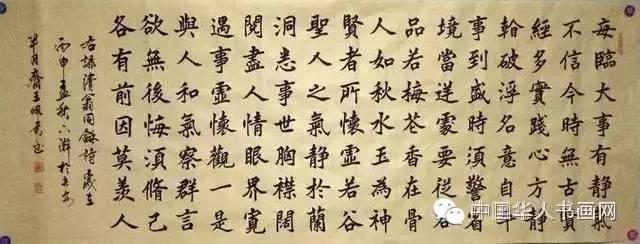 每臨大事有静氣
不信今時無古賢
經多實踐心方静
破浮名意自平
事到盛時須警省
境當逆處要從容
品若梅花香在骨
人如秋水玉為神
賢者所懷虚若谷
聖人之氣静於蘭
洞悉事世胸襟闊
閱盡人情眼界寬
遇事虚懷觀一是
與人和氣察群言
欲無後悔須脩己
各有前因莫羨人
右錄清翁同龢詩歲在
丙申孟秋下澣於長安
半月齋主
中国华人书画网